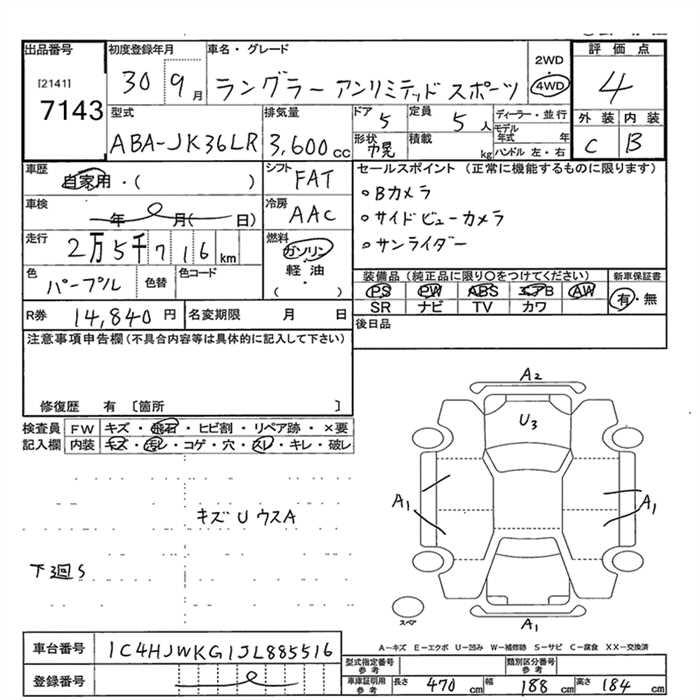 出品番号 初度登録年月 車名・グレード 2WD 評価点
[2141] 30 9月 ラングラー アンリミテッド スポーツ 4WD 4
7143
型式 排気量 ドア 定員 ディーラー・並行 外装 内装
ABA-JK36LR 3,600cc 5 5人 モデル年式 年 C B
形状 幌 積載 kg ハンドル 左・右
車歴 自家用・( ) シフト FAT セールスポイント (正常に機能するものに限ります)
車検 年 月( 日) 冷房 AAC 。Bカメラ
。サイドビューカメラ
走行 2万5千716km 燃料 ガソリン 。サンライダー
軽油
( ・ )
色 パープル 色替 色コード 装備品 (純正品に限り○をつけてください) 新車保証書
PS PW ABS エアB AW 有・無
R券 14,840円 名変期限 月 日 SR ナビ TV カワ
注意事項申告欄(不具合内容等は具体的に記入して下さい) 後日品
修復歴 有 〔箇所 〕
検査員 FW キズ・飛石・ヒビ割・リペア跡・×要
記入欄 内装 キズ・汚レ・コゲ・穴・スレ・キレ・破レ
A2
U3
A1 A1
キズ U ウスA
下3回S
スペア A1
A−キズ E−エクボ U−凹み W−補修跡 S−サビ C−腐食 XX−交換済
車台番号 1C4HJWKG1JL885516
型式指定番号 参考 類別区分番号 参考
登録番号 車庫証明用 参考 長さ 470cm 幅 188cm 高さ 184cm